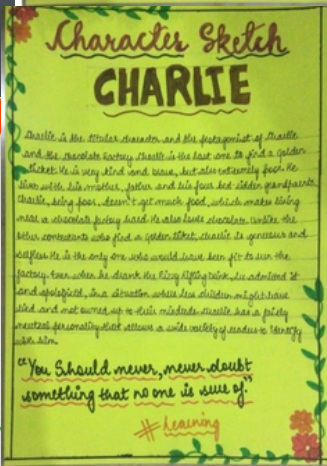 Character Sketch
CHARLIE
Charlie is the titular character and the protagonist of Charlie
and the chocolate factory. Charlie is the last one to find a Golden
ticket. He is very kind and brave, but also extremely poor. He
lives with his mother, father and his four bed-ridden grandparents.
Charlie, being poor, doesn't get much food, which makes living
near a chocolate factory hard. He also loves chocolate. Unlike the
other contestants who find a Golden ticket, Charlie is generous and
selfless. He is the only one who would have been fit to run the
factory. Even when he drank the Fizzy lifting drink, he admitted it
and apologised, in a situation where less children might have
lied and not owned up to their misdeeds. Charlie has a fairly
neutral personality that allows a wide variety of readers to identify
with him.
"You Should never, never doubt
something that no one is sure of."
# Learning